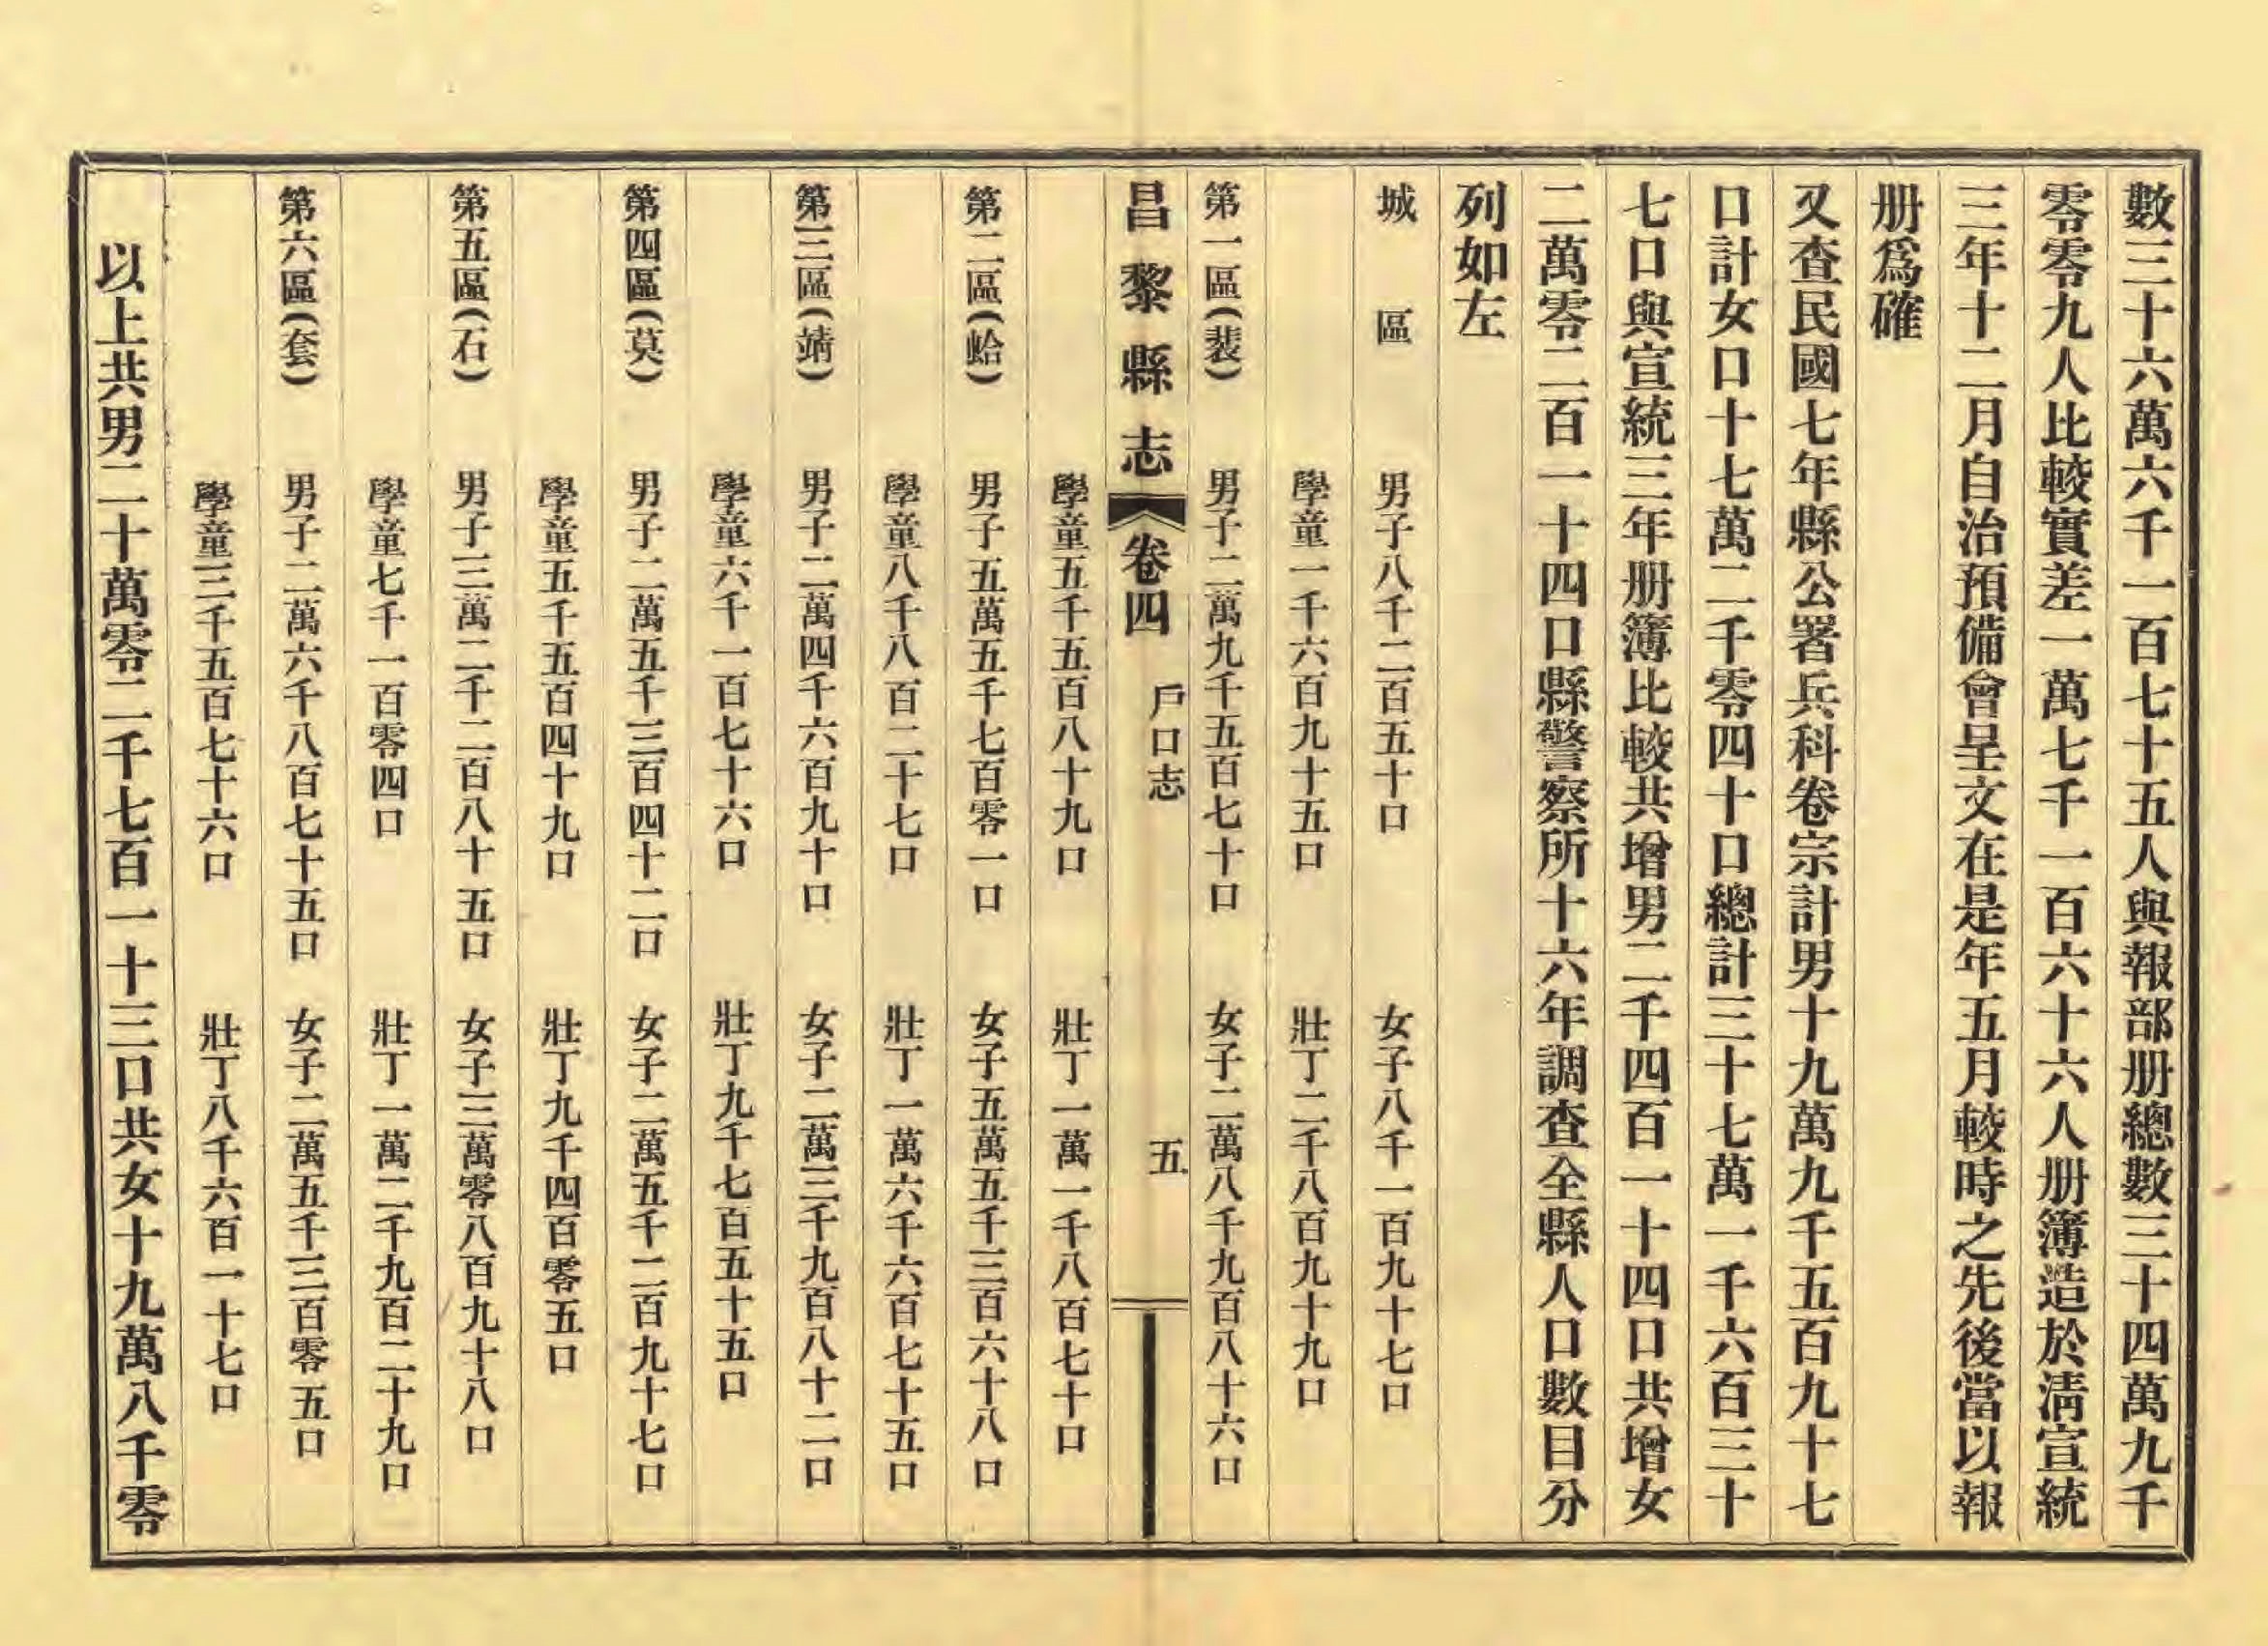 數三十六萬六千一百七十五人與報部册總數三十四萬九千
零零九人比較實差一萬七千一百六十六人册簿造於淸宣統
三年十二月自治預備會呈文在是年五月較時之先後當以報
册爲確
又查民國七年縣公署兵科卷宗計男十九萬九千五百九十七
口計女口十七萬二千零四十口總計三十七萬一千六百三十
七口與宣統三年册簿比較共增男二千四百一十四口共增女
二萬零二百一十四口縣警察所十六年調查全縣人口數目分
列如左
城區 男子八千二百五十口 女子八千一百九十七口
學童一千六百九十五口 壯丁二千八百九十九口
第一區(裴) 男子二萬九千五百七十口 女子二萬八千九百八十六口
昌黎縣志 卷四 戶口志 五
學童五千五百八十九口 壯丁一萬一千八百七十口
第二區(蛤) 男子五萬五千七百零一口 女子五萬五千三百六十八口
學童八千八百二十七口 壯丁一萬六千六百七十五口
第三區(靖) 男子二萬四千六百九十口 女子二萬三千九百八十二口
學童六千一百七十六口 壯丁九千七百五十五口
第四區(莫) 男子二萬五千三百四十二口 女子二萬五千二百九十七口
學童五千五百四十九口 壯丁九千四百零五口
第五區(石) 男子三萬二千二百八十五口 女子三萬零八百九十八口
學童七千一百零四口 壯丁一萬二千九百二十九口
第六區(套) 男子二萬六千八百七十五口 女子二萬五千三百零五口
學童三千五百七十六口 壯丁八千六百一十七口
以上共男二十萬零二千七百一十三口共女十九萬八千零